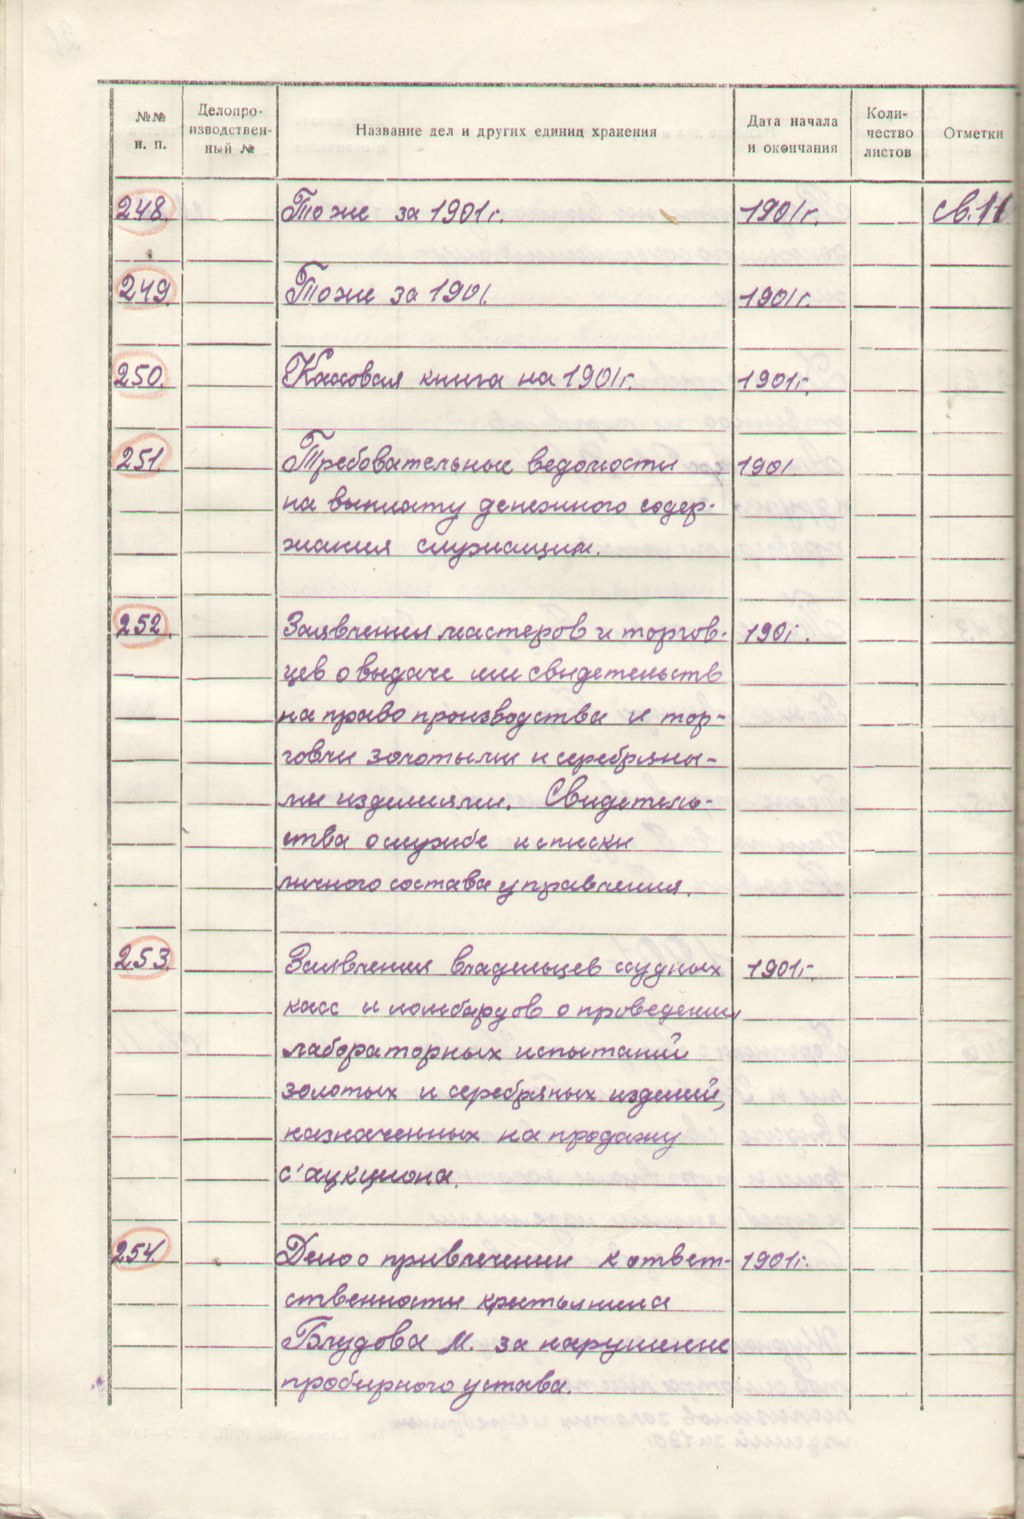 №№ п. п. Делопро-изводствен-ный № Название дел и других единиц хранения Дата начала и окончания Коли-чество листов Отметки
248. То же за 1901 г. 1901 г. св. 11
249. То же за 1901. 1901 г.
250. Кассовая книга на 1901 г. 1901 г.
251. Требовательные ведомости 1901
на выплату денежного содер-
жания служащим.
252. Заявления мастеров и торгов- 190 г.
цев о выдаче им свидетельств
на право производства и тор-
говли золотыми и серебряны-
ми изделиями. Свидетель-
ства о службе и списки
личного состава управления.
253. Заявления владельцев ссудных 1901 г.
касс и ломбардов о проведении
лабораторных испытаний
золотых и серебряных изделий,
назначенных на продажу
с'аукциона.
254. Дело о привлечении к ответ- 1901 г.
ственности крестьянина
Блудова М. за нарушение
пробирного устава.